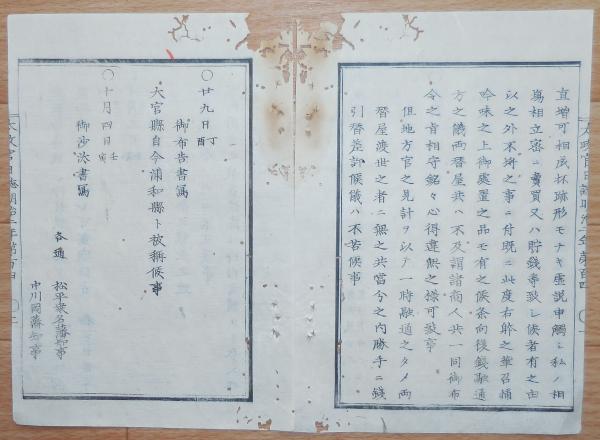 直増可相成抔跡形モナキ虚説申觸シ私ノ相
塲相立密ニ賣買又ハ貯錢専致シ候者有之由
以之外不埒之事ニ付既ニ此度右躰之輩召捕
吟味之上御處置之品モ有之候条向後錢融通
方之儀両替屋共ハ不及謂諸商人共一同御布
令之旨相守銘々心得違無之様可致事
但地方官之見計ヲ以テ一時融通之タメ両
替屋渡世之者ニ無之共當今之内勝手ニ錢
引替差許候儀ハ不苦候事
〇廿九日丁酉
御布告書寫
大宮縣自今浦和縣ト被稱候事
〇十月四日壬寅
御沙汰書寫
各通
松平桑名藩知事
中川岡藩知事